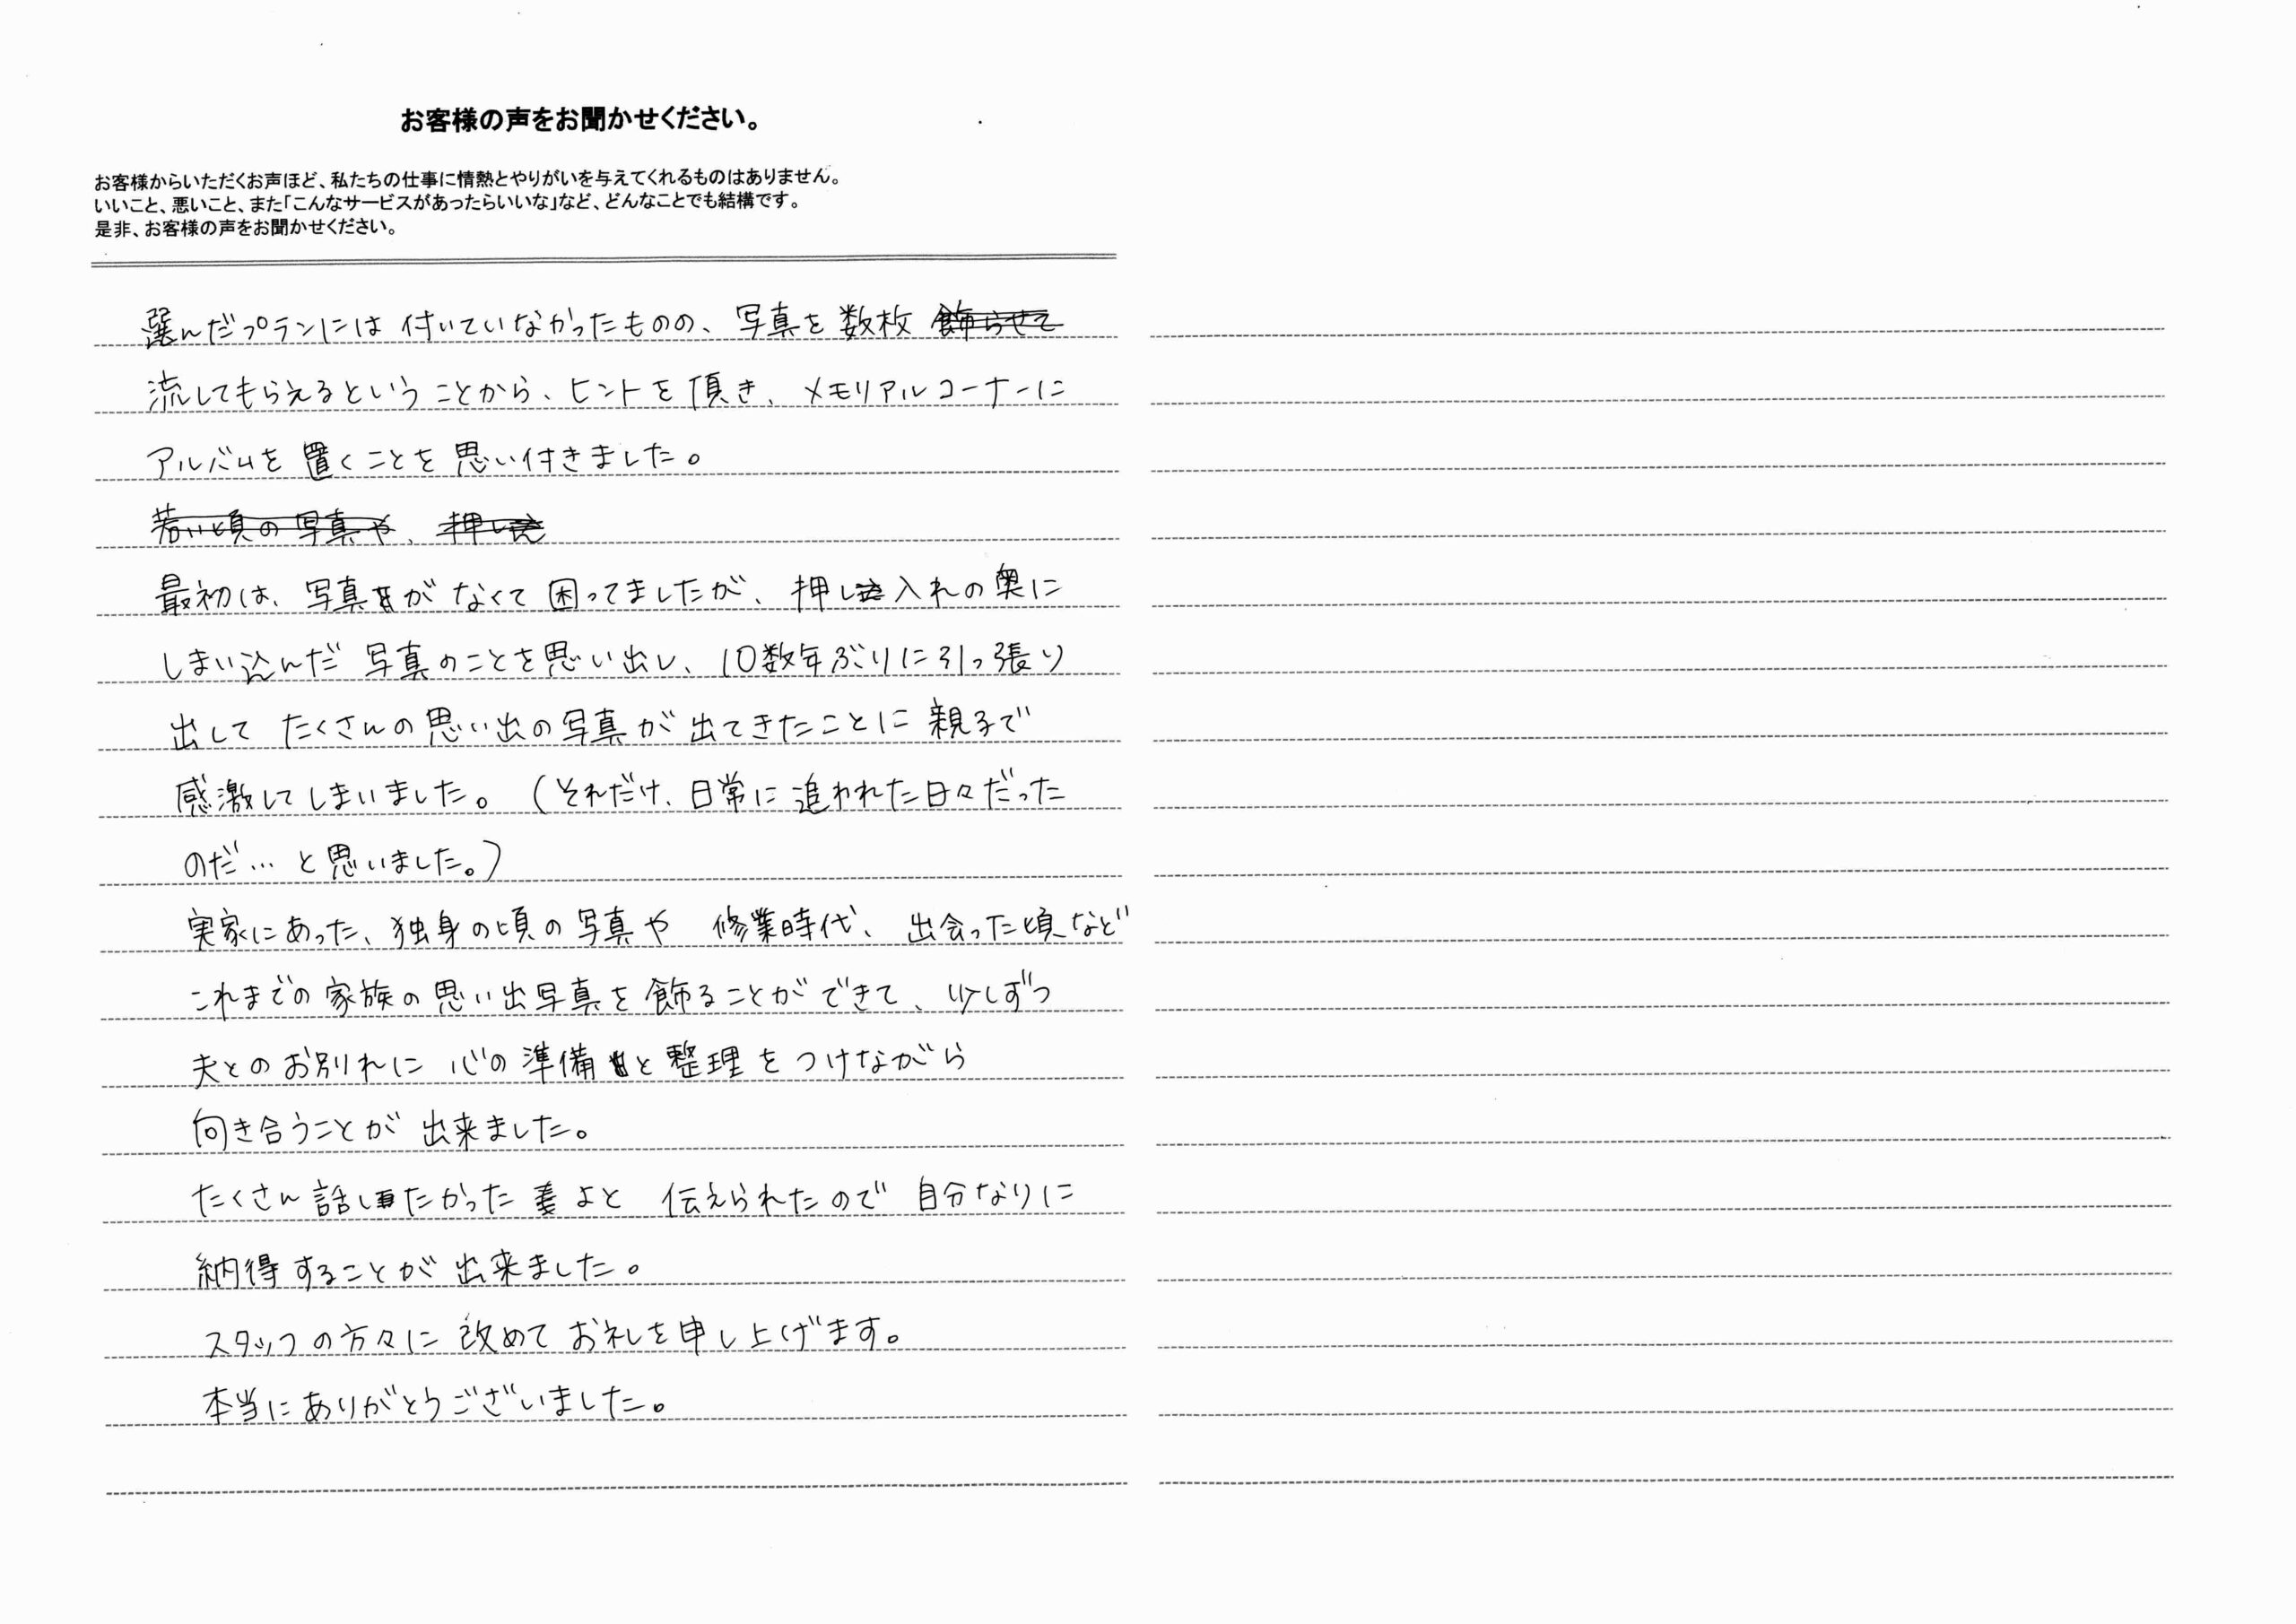 お客様の声をお聞かせください。
お客様からいただくお声ほど、私たちの仕事に情熱とやりがいを与えてくれるものはありません。
いいこと、悪いこと、また「こんなサービスがあったらいいな」など、どんなことでも結構です。
是非、お客様の声をお聞かせください。
選んだプランには付いていなかったものの、写真を数枚 飾らせて
流してもらえるということから、ヒントを頂き、メモリアルコーナーに
アルバムを置くことを思い付きました。
若い頃の写真や、押し込
最初は、写真がなくて困ってましたが、押し入れの奥に
しまい込んだ写真のことを思い出し、10数年ぶりに引っ張り
出して たくさんの思い出の写真が出てきたことに親子で
感激してしまいました。(それだけ、日常に追われた日々だった
のだ…と思いました。)
実家にあった、独身の頃の写真や 修業時代、出会った頃など
これまでの家族の思い出写真を飾ることができて、少しずつ
夫とのお別れに 心の準備と整理をつけながら
向き合うことが出来ました。
たくさん話したかった よと 伝えられたので 自分なりに
納得することが出来ました。
スタッフの方々に改めてお礼を申し上げます。
本当にありがとうございました。